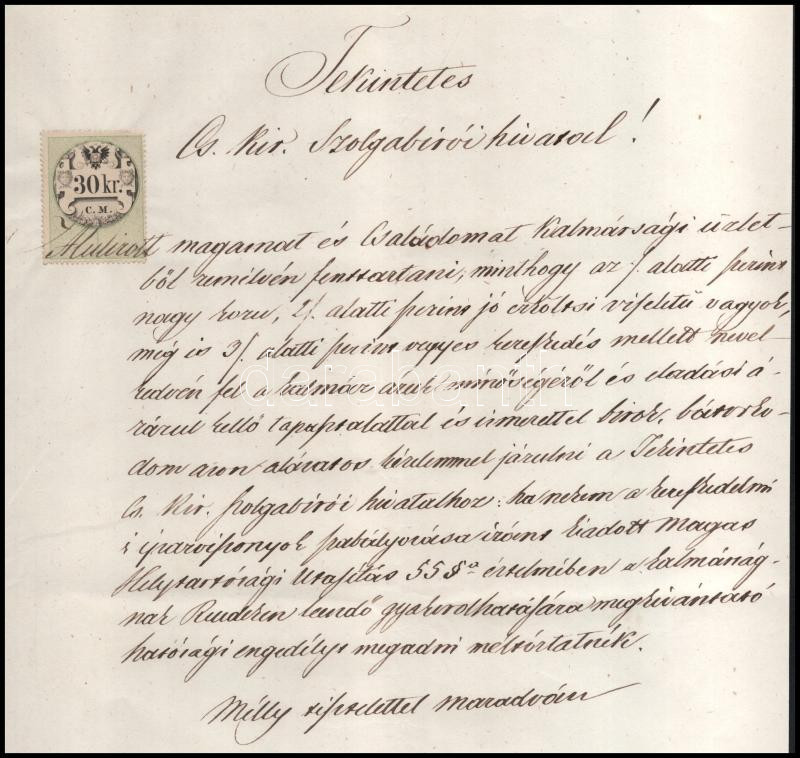 Tekintetes
Cs. Kir. Szolgabírói hivatal!
30 kr.
C. M.
Alulirott magamat és Családomat Kalmársági üzlet-
ből remélvén fenttartani, minthogy az 1/. alatti szerint
nagy koru, 2/. alatti szerint jó erköltsi viseletű vagyok,
még is 3/. alatti szerint vegyes kereskedés mellett nevel-
kedvén fel a kalmár áruk minőségéről és eladási á-
rárul kellő tapasztalattal és ismerettel birok, bátorko-
dom azon alázatos kérelemmel járulni a Tekintetes
Cs. Kir. Szolgabírói hivatalhoz: ha nekem a kereskedelmi
s iparviszonyok szabályozása iránt kiadott Magas
Helytartósági Utasítás 55 §a értelmében a kalmárság-
nak leendő gyakorolhatására megkivántató
hatósági engedélyt megadni méltóztatnék.
Mélly tisztelettel maradván
darabanth